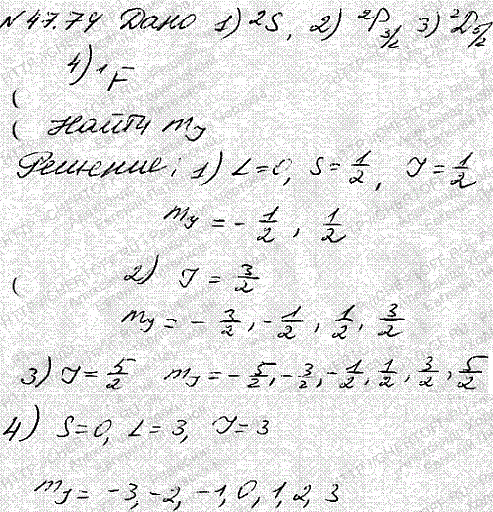 № 47.74 Дано 1) ²S, 2) ²P₃/₂ 3) ²D₅/₂
4) ¹F
(
( Найти mJ
Решение: 1) L=0, S=1/2, J=1/2
mJ = -1/2, 1/2
( 2) J = 3/2
mJ = -3/2, -1/2, 1/2, 3/2
3) J=5/2 mJ = -5/2, -3/2, -1/2, 1/2, 3/2, 5/2
4) S=0, L=3, J=3
mJ = -3, -2, -1, 0, 1, 2, 3